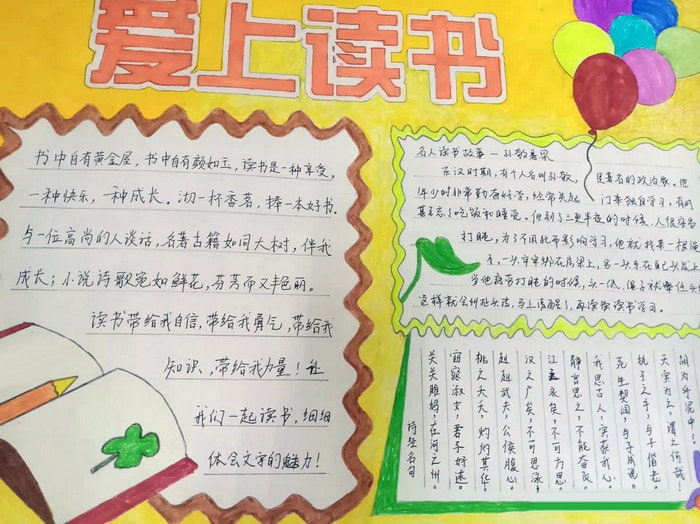 爱上读书
书中自有黄金屋，书中自有颜如玉，读书是一种享受，
一种快乐，一种成长。沏一杯香茗，捧一本好书，
与一位高尚的人谈话，名著古籍如同大树，伴我
成长；小说诗歌宛如鲜花，芬芳而又丰艳丽。
读书带给我自信，带给我勇气，带给我
知识，带给我力量！让
我们一起读书，细细
体会文字的魅力！
名人读书故事—孙敬悬梁
东汉时期，有个人名叫孙敬，是著名的政治家。他
年少时非常勤奋好学，经常关起门来独自学习，有时
甚至忘了吃饭和睡觉。但到了三更半夜的时候，人很容易
打盹，为了不因此而影响学习，他就找来一根绳
子，一头牢牢绑在房梁上，另一头系在自己头发上
当他疲劳打盹的时候，头一低，绳子就
这样就会纠扯头皮，马上清醒了，再继续读书学习。
诗经名句
关关雎鸠，在河之洲。
窈窕淑女，君子好逑。
桃之夭夭，灼灼其华。
赳赳武夫，公侯腹心。
汉之广矣，不可泳
江之永矣，不可方思。
静言思之，不能奋飞。
我思古人，实获我心。
死生契阔，与子成说。
执子之手，与子偕老。
天实为之，谓之何哉